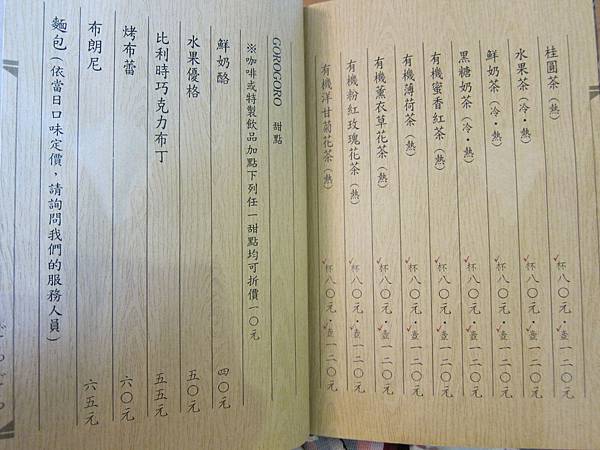 桂圓茶(熱) 杯八〇元・壺一二〇元
水果茶(冷・熱) 杯八〇元・壺一二〇元
鮮奶茶(冷・熱) 杯八〇元・壺一二〇元
黑糖奶茶(冷・熱) 杯八〇元・壺一二〇元
有機蜜香紅茶(熱) 杯八〇元・壺一二〇元
有機薄荷茶(熱) 杯八〇元・壺一二〇元
有機薰衣草花茶(熱) 杯八〇元・壺一二〇元
有機粉紅玫瑰花茶(熱) 杯八〇元・壺一二〇元
有機洋甘菊花茶(熱) 杯八〇元・壺一二〇元
GOROGORO 甜點
※咖啡或特製飲品加點下列任一甜點均可折價一〇元
鮮奶酪 四〇元
水果優格 五〇元
比利時巧克力布丁 五五元
烤布蕾 六〇元
布朗尼 六五元
麵包(依當日口味定價,請詢問我們的服務人員)
ごろごろ